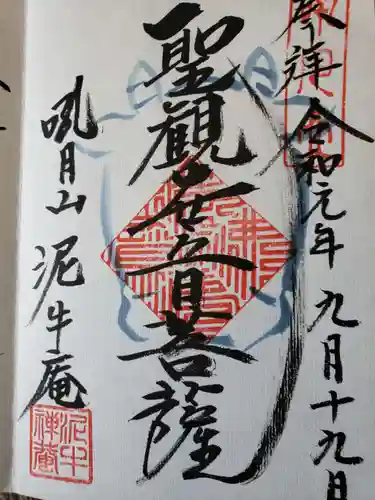 奉拝 令和元年九月十九日
聖観世音菩薩
吼月山 泥牛庵